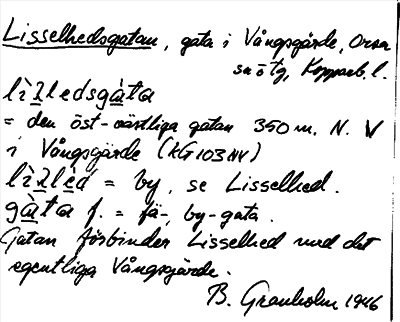 Lisselhedsgatan, gata i Vångsgärde, Orsa
sn ö tg, Kopparb. l.
lìʌledsgàta
= den öst-västliga gatan 350 m. N. V
i Vångsgärde (KG 103 NV)
lìʌlèd = by, se Lisselhed.
gàta f. = fä-, by-gata.
Gatan förbinder Lisselhed med det
egentliga Vångsgärde.
B. Granholm 1946